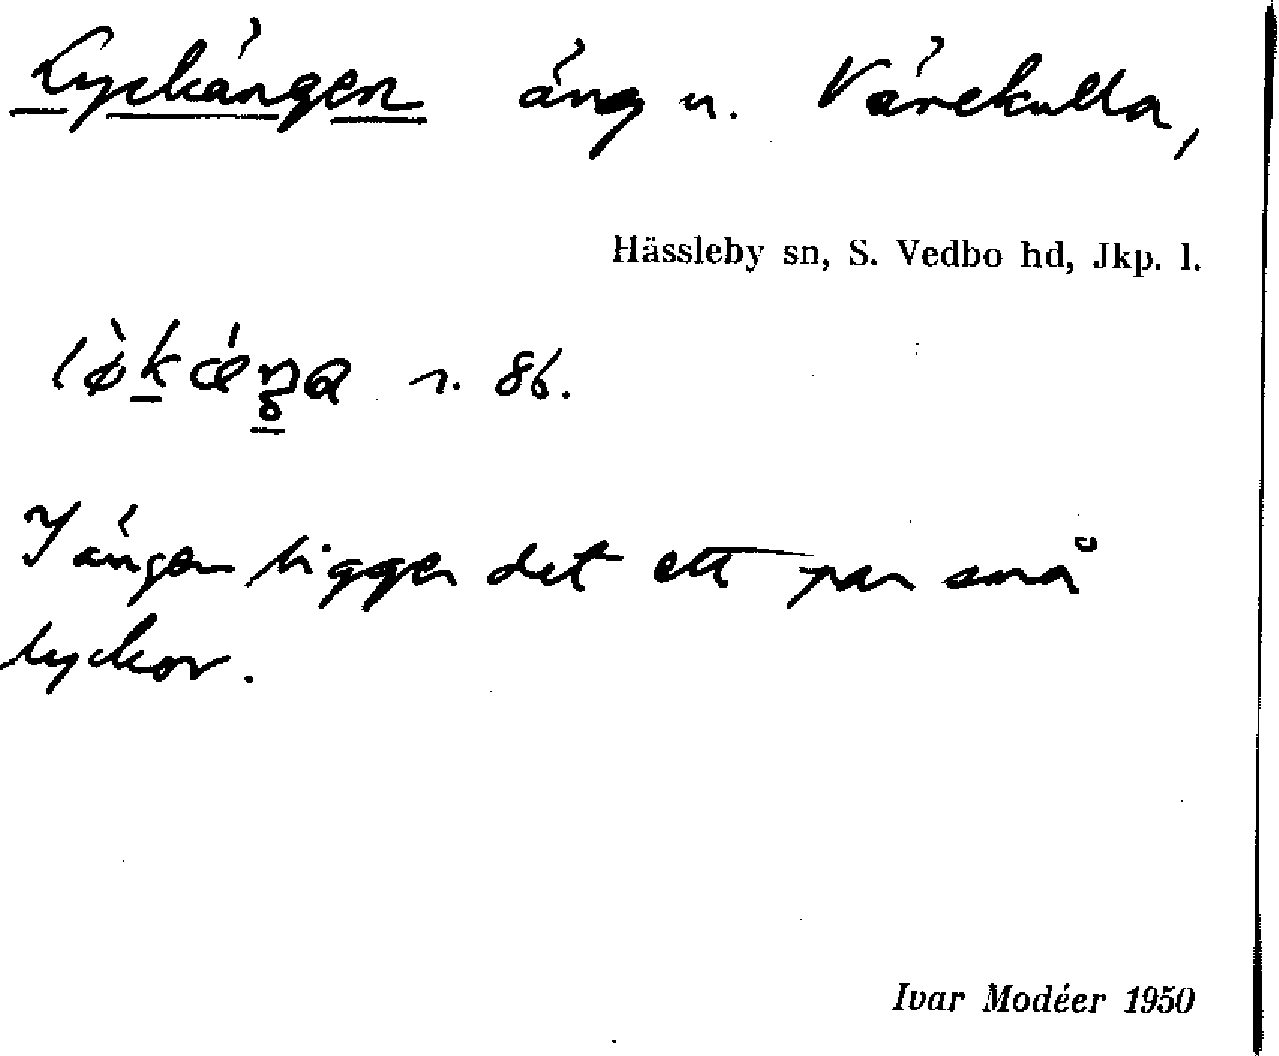 Lyckängen äng u. Värekulla,
Hässleby sn, S. Vedbo hd, Jkp. l.
r. 86.
I ängen ligger det ett par små
lyckor.
Ivar Modéer 1950